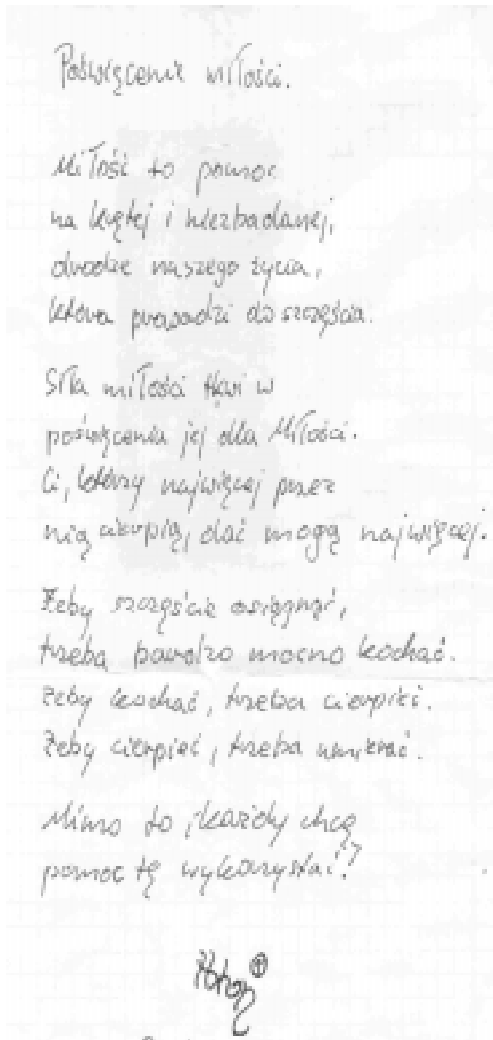 Poświęcenie miłości.
Miłość to pomoc
na krętej i niezbadanej,
drodze naszego życia,
która prowadzi do szczęścia.
Siła miłości tkwi w
poświęceniu jej dla Miłości.
Ci, którzy najwięcej przez
nią cierpią, dać mogą najwięcej.
Żeby szczęście osiągnąć,
trzeba bardzo mocno kochać.
Żeby kochać, trzeba cierpieć.
Żeby cierpieć, trzeba umierać.
Mimo to, każdy chcę
pomoc tę wykorzystać!?